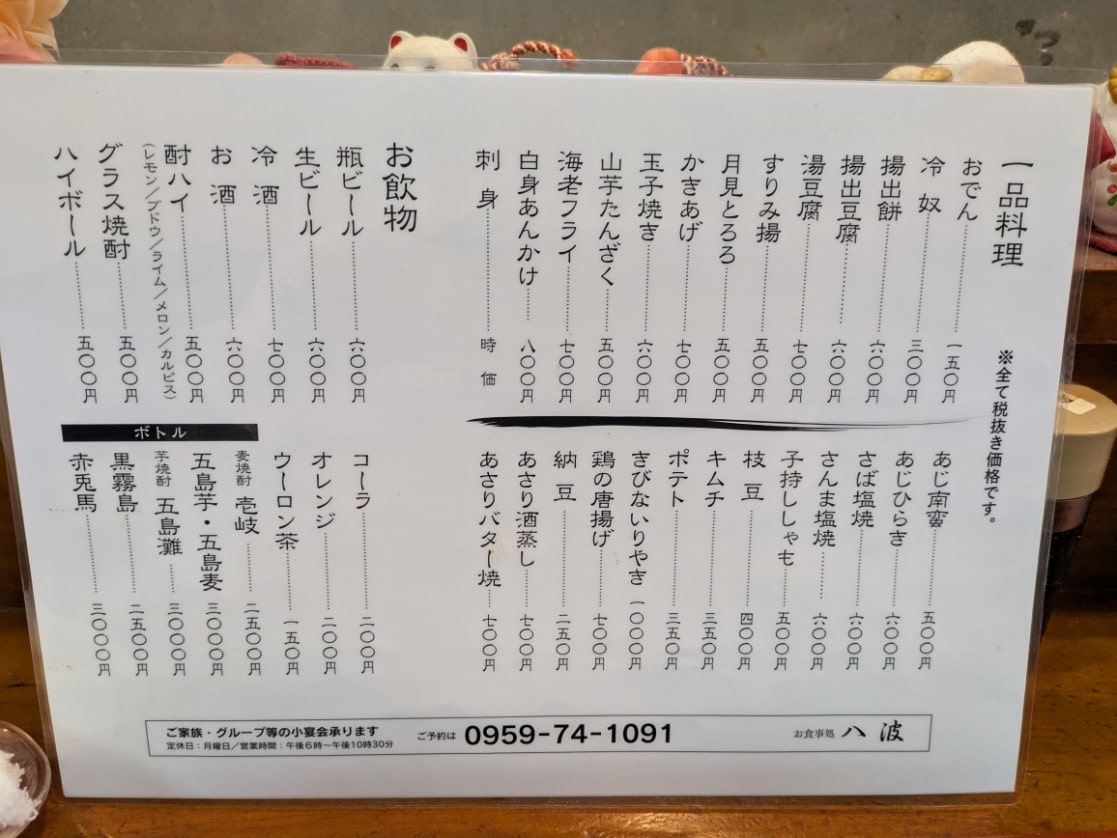 一品料理
※全て税抜き価格です。
おでん 一五〇円
冷奴 三〇〇円
揚出餅 六〇〇円
揚出豆腐 六〇〇円
湯豆腐 七〇〇円
すりみ揚 五〇〇円
月見とろろ 五〇〇円
かきあげ 七〇〇円
玉子焼き 六〇〇円
山芋たんざく 五〇〇円
海老フライ 七〇〇円
白身あんかけ 八〇〇円
刺身 時価
あじ南蛮 五〇〇円
あじひらき 六〇〇円
さば塩焼 六〇〇円
さんま塩焼 六〇〇円
子持ししゃも 五〇〇円
枝豆 四〇〇円
キムチ 三五〇円
ポテト 三五〇円
きびないりやき 一〇〇〇円
鶏の唐揚げ 七〇〇円
納豆 二五〇円
あさり酒蒸し 七〇〇円
あさりバター焼 七〇〇円
お飲物
瓶ビール 六〇〇円
生ビール 六〇〇円
冷酒 七〇〇円
お酒 六〇〇円
酎ハイ 五〇〇円
(レモン/ブドウ/ライム/メロン/カルピス)
グラス焼酎 五〇〇円
ハイボール 五〇〇円
コーラ 二〇〇円
オレンジ 二〇〇円
ウーロン茶 一五〇円
ボトル
麦焼酎 壱岐 二五〇〇円
五島芋・五島麦 三〇〇〇円
芋焼酎 五島灘 三〇〇〇円
黒霧島 二五〇〇円
赤兎馬 三〇〇〇円
ご家族・グループ等の小宴会承ります
定休日：月曜日/営業時間：午後6時〜午後10時30分
ご予約は 0959-74-1091
お食事処 八波